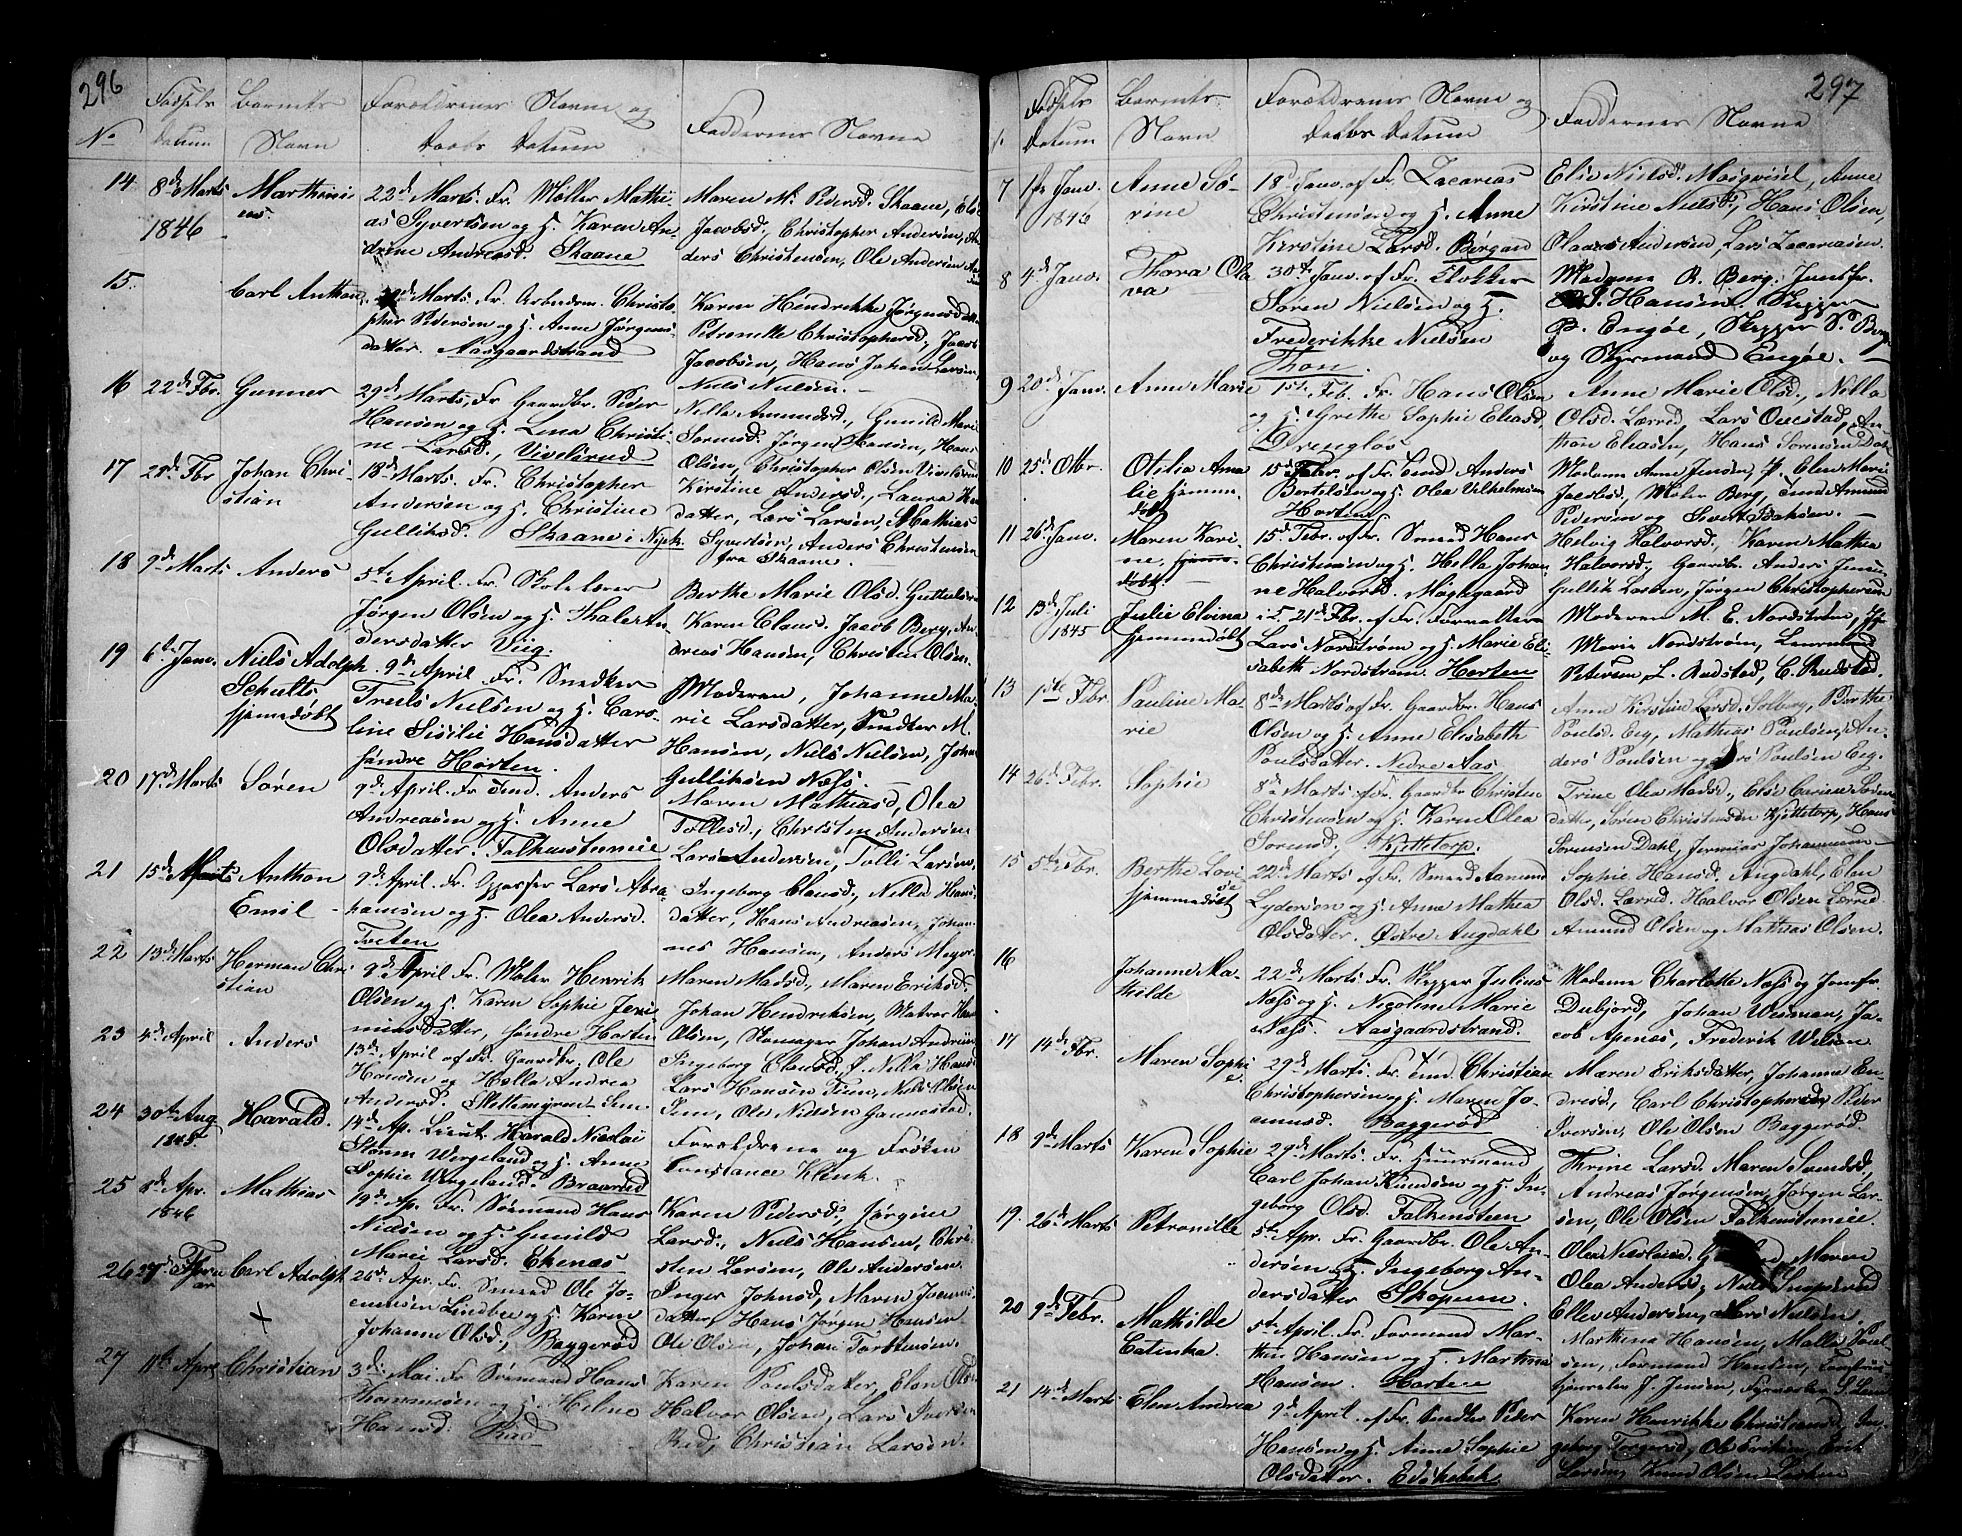 296
Fødsels Barnets Forældrenes Navne og
No Datum Navn Daabs Datum Faddernes Navne
14 8de Marts 1846 Marthinius
22de Marts. Fr. Møller Mathi-
as Syvertsen og H. Karen An-
drine Andreasd. Skaane
Maren M. Pedersd. Skaane, Else
Jacobsd., Christopher Andersen, An-
ders Christensen, Ole Andersen
15. Carl Anthon
22de Marts. Fr. Arbeidsm. Christo-
pher Pedersen og H. Anne Jørgens-
datter. Aasgaardstrand
Karen Hendrikke Jørgensdatter
Petronille Christophersd., Jacob
Jacobsen, Hans Johan Larsen,
Niels Nielsen. —
16 22de Fbr. Gunner
29de Marts, Fr. Gaardbr. Peder
Hansen og H. Lena Christi-
ne Larsd., Vivelsrud
Nella Amundsd., Gunild Marie
Sørensd. Jørgen Hansen, Hans
Olsen, Christopher Olsen Vivelsrud
17 28de Fbr Johan Chri-
stian
18de Marts. Fr. Christopher
Andersen og H. Christine
Gulliksd. Skaane i Nyk.
Kirstine Andersd., Laura
datter, Lars Larsen, Mathias
Syvertsen, Anders Christensen
fra Skaane.
18 9de Marts Anders
5te April. Fr. Skolelærer
Jørgen Olsen og H. Thale An-
dersdatter Viig.
Berthe Marie Olsd.
Karen Clausd. Jacob Berg, An-
dreas Hansen, Christen Olsen.
19 6te Janv. Niels Adolph
Schults
hjemmedøbt
9de April Fr. Snedker
Truls Nielsen og H. Caro-
line Sisilie Hansdatter
søndre Horten.
Moderen, Johanne Ma-
rie Larsdatter, M.
Hansen, Niels Nielsen, Johan
Gulliksen Næss. —
20 17de Marts Søren
9de April. Fr. Anders
Andreasen og H. Anne
Olsdatter. Falkensteneie
Maren Mathiasd, Olea
Tollesd., Christen Andersen
Lars Andersen, Tolle Larsen.
21 15de Marts Anthon
Emil —
9de April. Fr. Lars Abra-
hamsen og H. Olea Andersd.
Tveten
Ingeborg Clausd., Nella Hans-
datter, Hans Andreasen, Johan-
nes Hansen, Anders Meyer
22 13de Marts Herman Chri-
stian
9de April Fr. Maler Henrik
Olsen og H. Karen Sophie Jere-
miasdatter, søndre Horten
Maren Madsd, Maren Eriksd.
Johan Hendriksen,
Olsen, Johan
23 4de April Anders
13de April af Fr. Gaardbr. Ole
Hansen og Helle Andrea
Andersd.
Ingeborg Clausd., Nella Hans-
Lars Hansen Niels Olsen
Ole Nielsen Gannestad.
24 30te Aug 1845 Harald.
14de Ap. Lieut. Harald Nicolai
Storm Wergeland og H. Anne
Sophie Wergeland. Braarud
Forældrene og Frøken
Constance Klinck.
25 8de Apr. 1846 Mathias
19de Ap. Fr. Sømand Hans
Nielsen og H. Gunild
Marie Larsd. Ekenæs
Karen Pedersd., Jørgine
Larsd., Niels Hansen, Chri-
sten Larsen, Ole Andersen.
26 27de Februar Carl Adolph
26de Apr. Fr. Smed Ole Jo-
ensen Lindbee og H. Karen
Johanne Olsd, Baggerød
Inger Johnsd, Maren Joenns-
datter Hans Jørgen Hansen
Ole Olsen, Johan Torstensen.
27 11te Apr. Christian
3die Mai. Fr. Sømand Hans
Thommesen og H. Heline
Hansd. Rød
Karen Poulsdatter, Elen Ols
Halvor Olsen, Lars Iversen
Rød, Christian Larsen.
297
Fødsels Barnets Forældrenes Navne og
Datum Navn Daabs Datum Faddernes Navne
7 1ste Janv. 1846 Anne Sø-
rine
18de Janv. af Fr. Zacarias
Christensen og H. Anne
Kirstine Larsd. Borgen
Elie Nielsd. Anne
Kirstine Nielsd., Hans Olsen,
Olaves Andersen, Lars Zacariasen.
8 4de Janv. Thora Ola-
va
30te Janv. af Fr. Klokker
Søren Nielsen og H.
Frederikke Nielsen
Thon.
Madame A. Berg. Jomfr.
S. Hansen. Skipper
P. Engøe, Skipper S. Berg
og Styrmand Engøe. —
9 20de Janv. Anne Marie
1ste Feb. Fr. Hans Olsen
og H. Grethe Sophie Eliasd,
Drengløs
Anne Marie Olsd., Nella
Olsd. Lærred Lars Ovestad, An-
thon Eliasen, Hans Sørensen
10 25de Otbr. Otilia Ama-
lie hjemme-
døbt
15de Febr. af Fr. Anders
Bertelsen og H. Olea Vilhelmsen
Horten
Madame Anne Jensen, H. Elen Marie
Jacobsd., Maler Berg, Amund
Pedersen og Sivert Isaksen. —
11 26de Janv. Maren Kari-
ne, hjemme-
døbt.
15de Febr. af Fr. Smed Hans
Christensen og H. Hella Johan-
ne Halvorsd.
Helvig Halvorsd., Karen Mathea
Halvorsd., Gaardbr. Anders Jensen
Gullik Larsen, Jørgen Christophersen
12 13de Juli 1845 Julie Elvina
hjemmedøbt
21de Fbr. af Fr. Formatter
Lars Nordstrøm og H. Marie Eli-
sabeth Nordstrøm. Horten
Moderen M. E. Nordstrøm,
Marie Nordstrøm, Laurend
Petersen L. Rudstad, C. Rudstad.
13 1ste Fbr. Pauline Ma-
rie
8de Marts af Fr. Gaardbr. Hans
Olsen og H. Anne Elisabeth
Poulsdatter. Nedre Aas
Anne Kirstine Larsd. Solberg, Berthe
Poulsd. Eeg, Mathias Poulsen, An-
ders Poulsen og Poulsen Eeg.
14 26de Febr. Sophie
8de Marts af Fr. Gaardbr. Christen
Christensen og H. Karen Olea
Sørensd. Kjettetorp.
Trine Olea Madsd., Else Carine Søren-
datter, Søren Christensen Kjettetorp, Hans
Sørensen Dahl, Jermias Johannesen —
15 5te Fbr. Berthe Lovi-
se
hjemmedøbt
22de Marts af Fr. Smed Amund
Lydersen og H. Anne Mathea
Olsdatter. Østre Augdahl
Sophie Hansd. Augdahl, Elen
Olsd. Lærred. Halvor Olsen Lærred
Amund Olsen og Mathias Olsen.
16 Johanne Ma-
thilde
22de Marts. Fr. Skipper Julius
Næss og H. Nicoline Marie
Næss. Aasgaardstrand.
Madame Charlotte Næss og Jomfr.
Dubjord, Johan Weiman, Ja-
cob Apenæs, Frederik Wilsen
17 14de Fbr. Maren Sophi-
e.
29de Marts. Fr. Christian
Christophersen og H. Maren Jo-
annesd. Baggerød
Maren Eriksdatter, Johanne En-
dresd., Carl Christophersen, Peder
Iversen, Ole Olsen Baggerød
18 9de Marts Karen Sophie
29de Marts. Fr. Styrmand
Carl Johan Knudsen og H. In-
geborg Olsd. Falkensteen
Thrine Larsd. Maren Svendsd,
Andreas Jørgensen, Jørgen Lar-
sen, Ole Olsen Falkensteneie.
19. 26de Marts Petronille
5te Apr. Fr. Gaardbr. Ole An-
dersen H. Ingeborg An-
dersdatter Skopum.
Olea Nicoline Maren
Olea Andersd, Niels
Elles Andersen, Lars Nielsen.
20 9de Febr. Mathilde
Catinka.
5te April. Fr. Formand Mar-
thin Hansen og H. Martina
Hansen. Horten
Marthina Hansen, Malla Poul-
sen, Formand Hansen,
J. Jensen,
21 14de Marts Elen Andrea
9de April. af Fr. Peder
Hansen og H. Anne Sophie
Olsdatter.
Karen Henrikke Christiansd, In-
geborg Torgersd, Ole Eriksen, Erik
Larsen, Knud Olsen